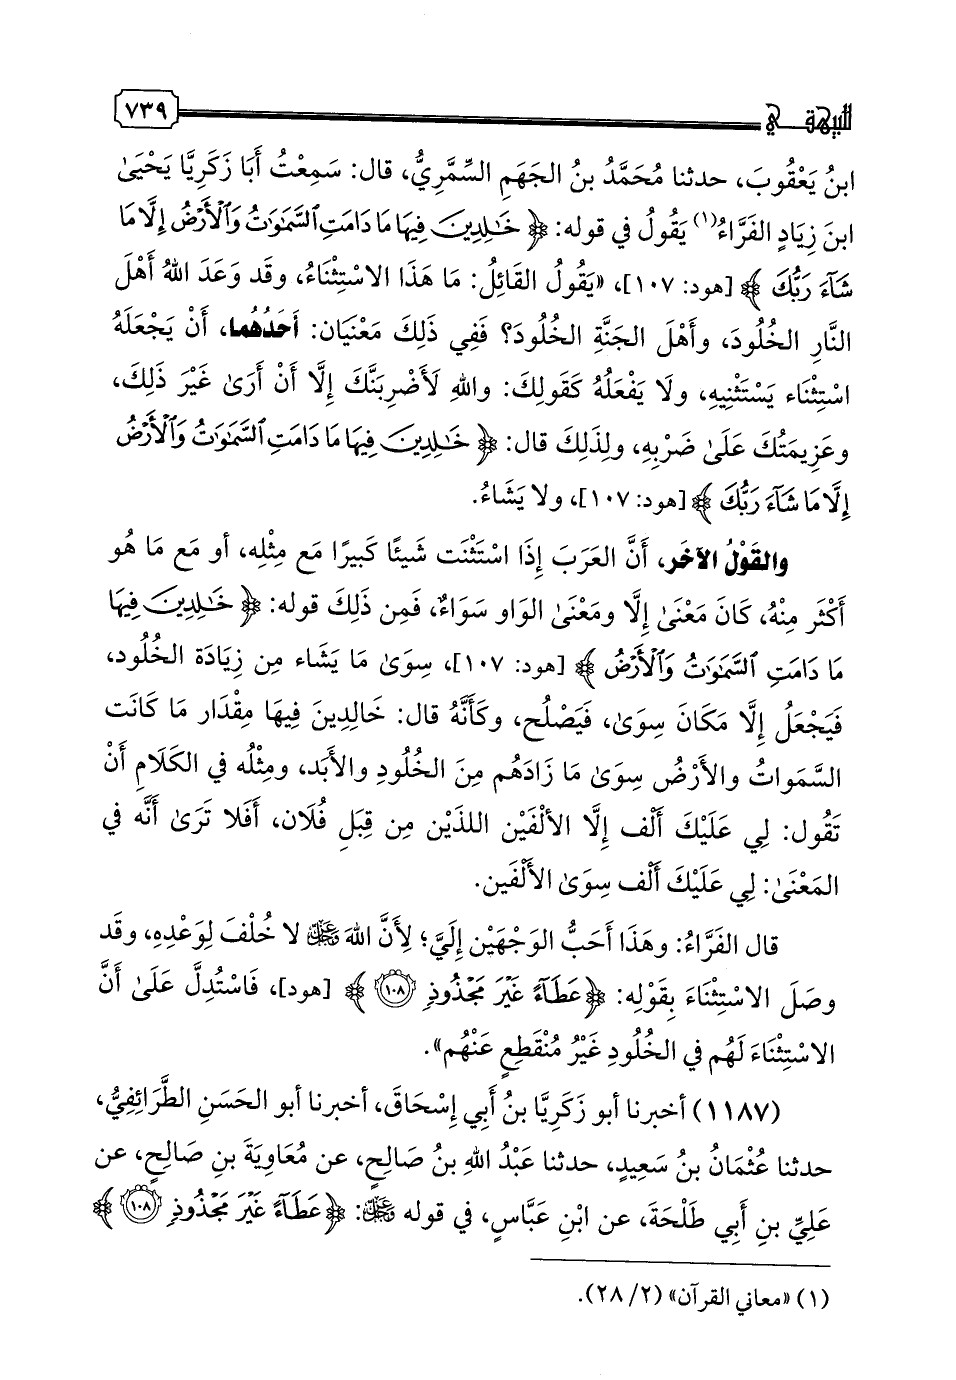 للبيهقي ٧٣٩
ابنُ يَعْقُوبَ، حدثنا مُحَمَّدُ بنُ الجَهَمِ السِّمَّرِيُّ، قال: سَمِعْتُ أَبَا زَكَرِيَّا يَحْيَىٰ
ابنَ زِيَادٍ الفَرَّاءَ(١) يَقُولُ في قوله: ﴿خَٰلِدِينَ فِيهَا مَا دَامَتِ ٱلسَّمَٰوَٰتُ وَٱلْأَرْضُ إِلَّا مَا
شَآءَ رَبُّكَ﴾ [هود: ١٠٧]، «يَقُولُ القَائِلُ: مَا هَذَا الاسْتِثْنَاءُ، وقَد وَعَدَ اللهُ أَهْلَ
النَّارِ الخُلُودَ، وأَهْلَ الجَنَّةِ الخُلُودَ؟ فَفِي ذَلِكَ مَعْنَيَان: أَحَدُهُما، أَنْ يَجْعَلَهُ
اسْتِثْنَاء يَسْتَثْنِيهِ، ولَا يَفْعَلُهُ كَقَولِكَ: واللهِ لَأَضْرِبَنَّكَ إِلَّا أَنْ أَرَىٰ غَيْرَ ذَلِكَ،
وعَزِيمَتُكَ عَلَىٰ ضَرْبِهِ، ولِذَلِكَ قال: ﴿خَٰلِدِينَ فِيهَا مَا دَامَتِ ٱلسَّمَٰوَٰتُ وَٱلْأَرْضُ
إِلَّا مَا شَآءَ رَبُّكَ﴾ [هود: ١٠٧]، ولا يَشَاءُ.
والقَوْلُ الآخَر، أَنَّ العَرَبَ إِذَا اسْتَثْنَت شَيئًا كَبيرًا مَع مِثْلِه، أو مَع مَا هُو
أَكْثَر مِنْهُ، كَانَ مَعْنَىٰ إِلَّا ومَعْنَىٰ الوَاو سَوَاءٌ، فَمِن ذَلِكَ قوله: ﴿خَٰلِدِينَ فِيهَا
مَا دَامَتِ ٱلسَّمَٰوَٰتُ وَٱلْأَرْضُ﴾ [هود: ١٠٧]، سِوَىٰ مَا يَشَاء مِن زِيَادَة الخُلُود،
فَيَجْعَلُ إِلَّا مَكَانَ سِوَىٰ، فَيَصْلُح، وكَأَنَّهُ قال: خَالِدِينَ فِيهَا مِقْدَار مَا كَانَت
السَّمَواتُ والأَرْضُ سِوَىٰ مَا زَادَهُم مِنَ الخُلُودِ والأَبَد، ومِثْلُه في الكَلَامِ أَنْ
تَقُول: لِي عَلَيْكَ أَلْف إِلَّا الأَلْفَيْن اللذَيْن مِن قِبَلِ فُلَان، أَفَلا تَرَىٰ أَنَّه في
المَعْنَىٰ: لِي عَلَيْكَ أَلْف سِوَىٰ الأَلْفَين.
قال الفَرَّاءُ: وهَذَا أَحَبُّ الوَجْهَيْن إِلَيَّ؛ لِأَنَّ اللهَ عَزَّوَجَلَّ لا خُلْفَ لِوَعْدِهِ، وقَد
وصَلَ الاسْتِثْنَاءَ بِقَوْلِه: ﴿عَطَآءً غَيْرَ مَجْذُوذٍ ١٠٨﴾ [هود]، فَاسْتُدِلَّ عَلَىٰ أَنَّ
الاسْتِثْنَاءَ لَهُم في الخُلُودِ غَيْرُ مُنْقَطِعٍ عَنْهُم».
(١١٨٧) أخبرنا أبو زَكَرِيَّا بنُ أَبِي إِسْحَاقَ، أخبرنا أبو الحَسَنِ الطَّرَائِفِيُّ،
حدثنا عُثْمَانُ بنُ سَعِيدٍ، حدثنا عَبْدُ اللهِ بنُ صَالِحٍ، عن مُعَاوِيَةَ بنِ صَالِحٍ، عن
عَلِيِّ بنِ أَبِي طَلْحَةَ، عن ابْنِ عَبَّاسٍ، في قوله عَزَّوَجَلَّ: ﴿عَطَآءً غَيْرَ مَجْذُوذٍ ١٠٨﴾
(١) «معاني القرآن» (٢/ ٢٨).